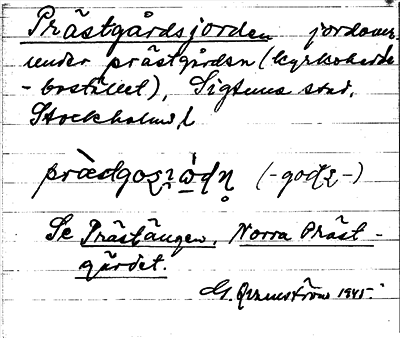 Prästgårdsjorden jordområde
under prästgården (kyrkoherde
-bostället), Sigtuna stad,
Stockholms l
(-godʐ-)
Se Prästängen, Norra Präst-
gärdet.
1945.